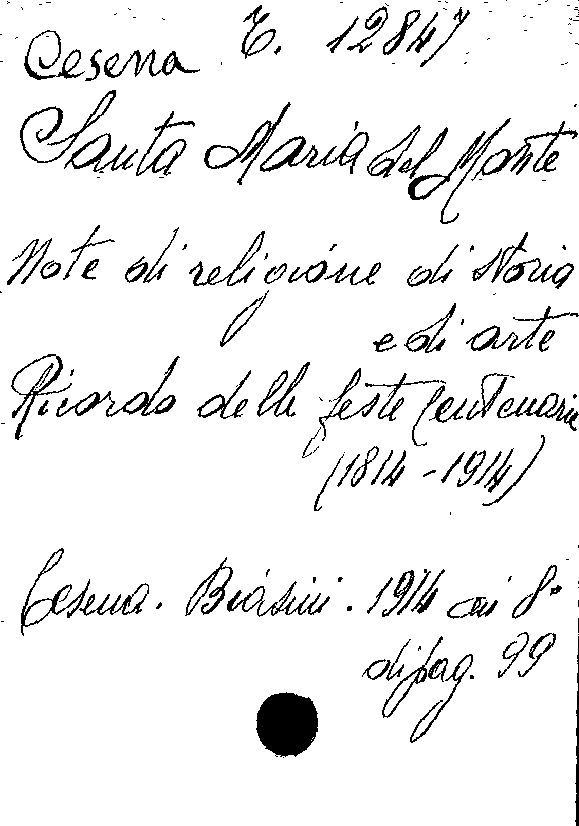 Cesena T. 12847
Santa Maria del Monte
Note di religione di storia
e di arte
Ricordo delle feste Centenarie
(1814-1914)
Cesena. Biasini. 1914 in 8°
di pag. 99